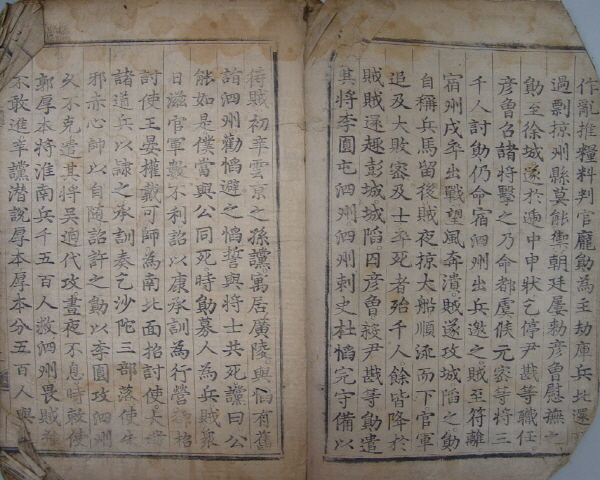 作亂推糧料判官龐勛為主劫庫兵北還
過剽掠州縣莫能禦朝廷屢勅彦魯慰撫之
勛至徐城遂於逓中申狀乞停尹戡等職任
彦魯召諸將擊之乃命都虞候元密等將三
千人討勛仍命宿泗州出兵邀之賊至符離
宿州戍卒出戰望風奔潰賊遂攻城陷之勛
自稱兵馬留後賊夜掠大船順流而下官軍
追及大敗密及士卒死者殆千人餘皆降於
賊賊還趣彭城城陷囚彦魯殺尹戡等勛遣
其將李圓屯泗州泗州刺史杜慆完守備以
待賊初辛雲京之孫讜寓居廣陵與慆有舊
詣泗州勸慆避之慆誓與將士共死讜曰公
能如是僕當與公同死時勛募人為兵賊衆
日滋官軍數不利詔以康承訓為行營招
討使王晏權戴可師為南北面招討使大發
諸道兵以隷之承訓表乞沙陀三部落使朱
邪赤心師以自随詔許之勛以李圓攻泗州
久不克遣其將吳逈代攻晝夜不息時敕使
郭厚本將淮南兵千五百人救泗州畏賊
不敢進辛讜潜説厚本厚本分五百人與